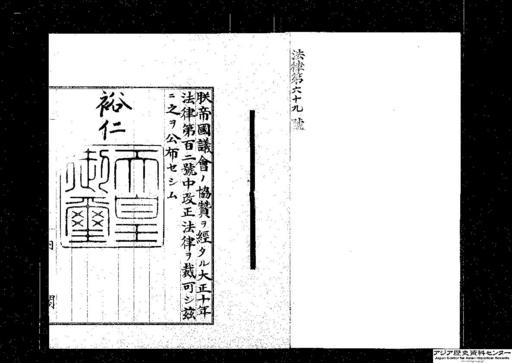 法律第六十九號
朕帝國議會ノ協贊ヲ經タル大正十年
法律第百二號中改正法律ヲ裁可シ茲
ニ之ヲ公布セシム
裕仁
天皇御璽
内閣
アジア歴史資料センター
Japan Center for Asian Historical Records